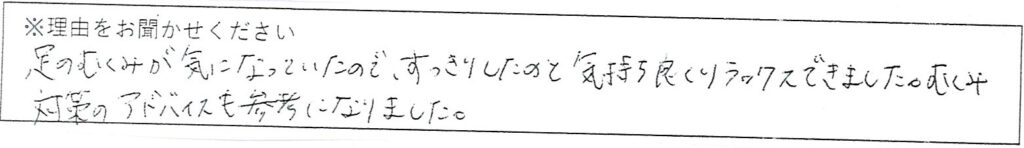 ※理由をお聞かせください
足のむくみが気になっていたので、すっきりしたのと気持ち良くリラックスできました。むくみ
対策のアドバイスも参考になりました。